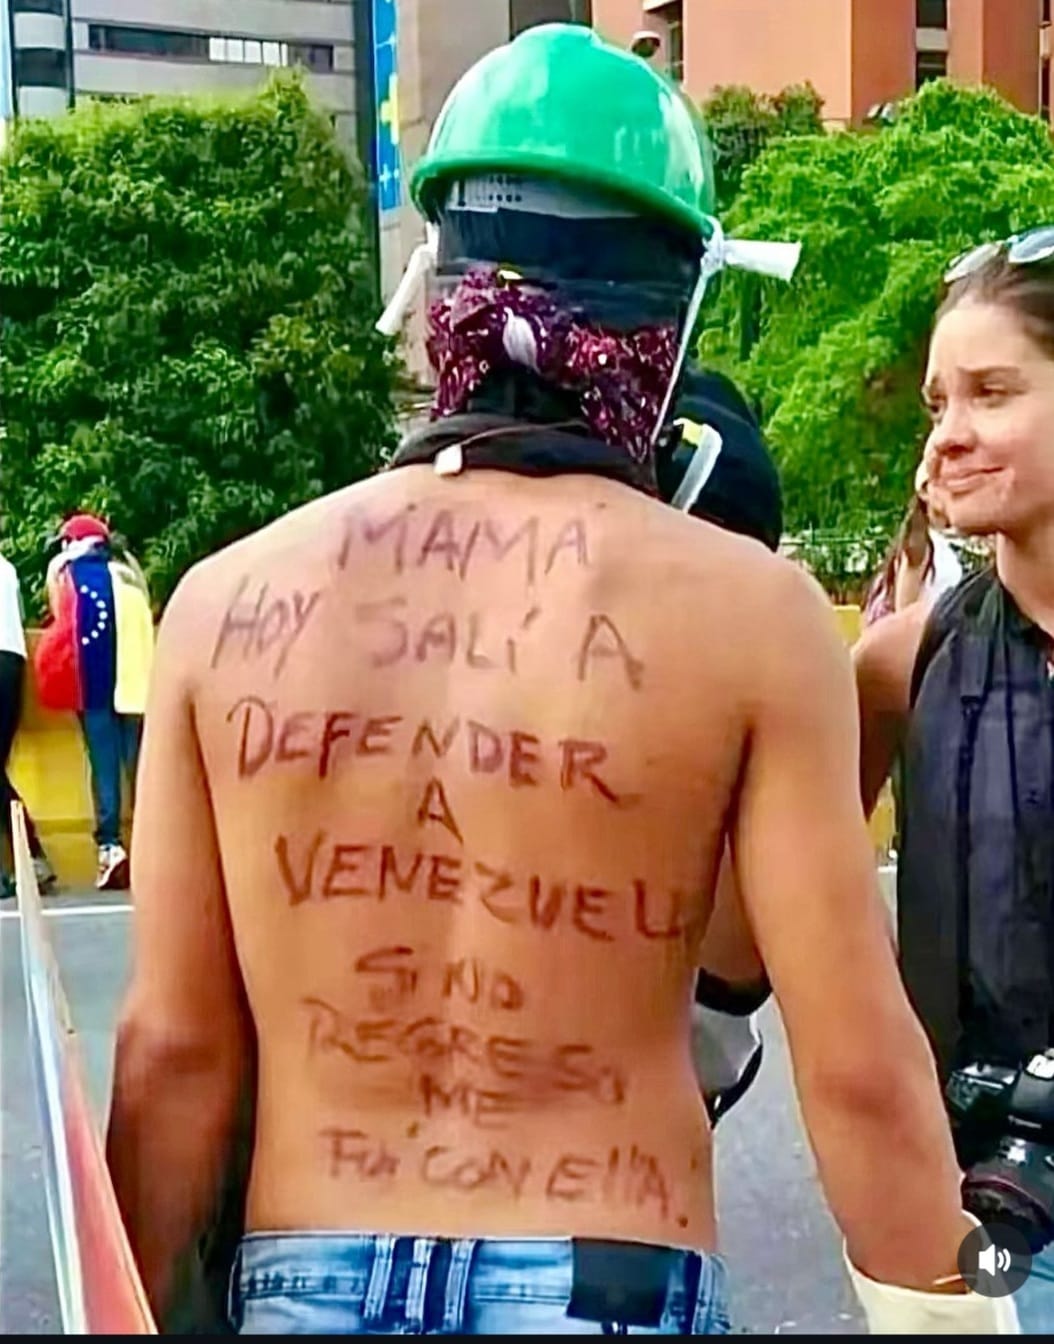 MAMÁ
HOY SALÍ A
DEFENDER
A
VENEZUELA
SI NO
REGRESO
ME
FUI CON ELLA.